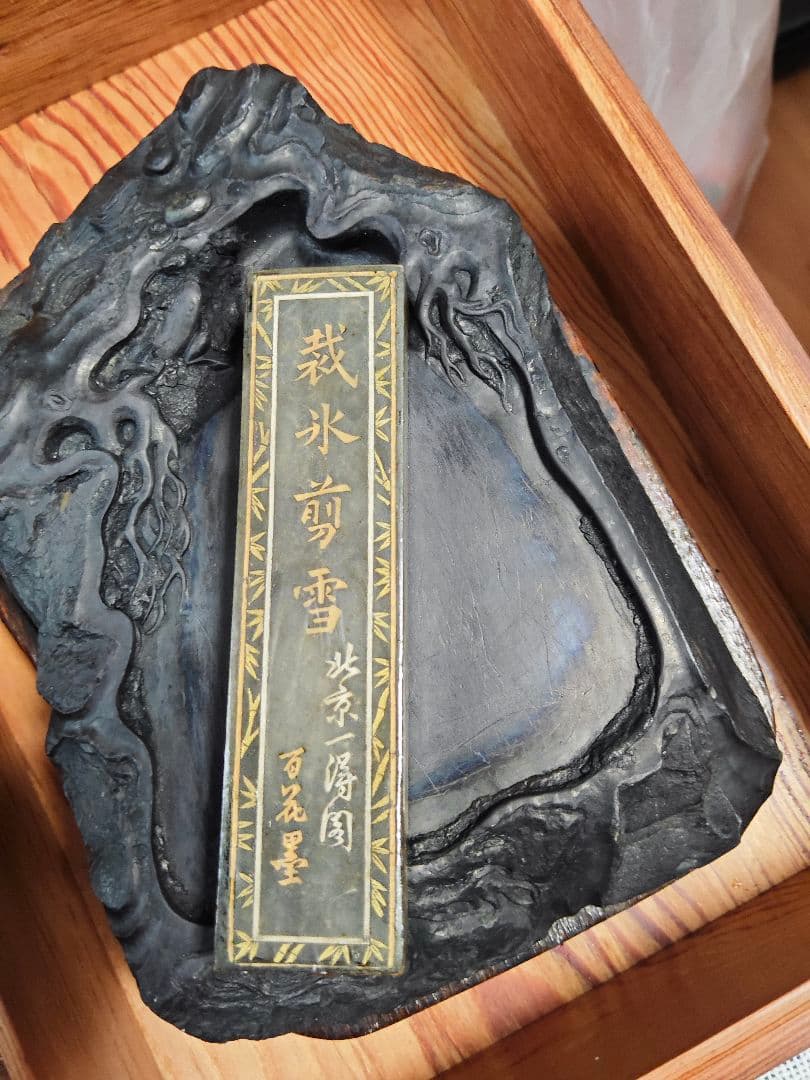 裁氷剪雪
北京一得阁
百花墨